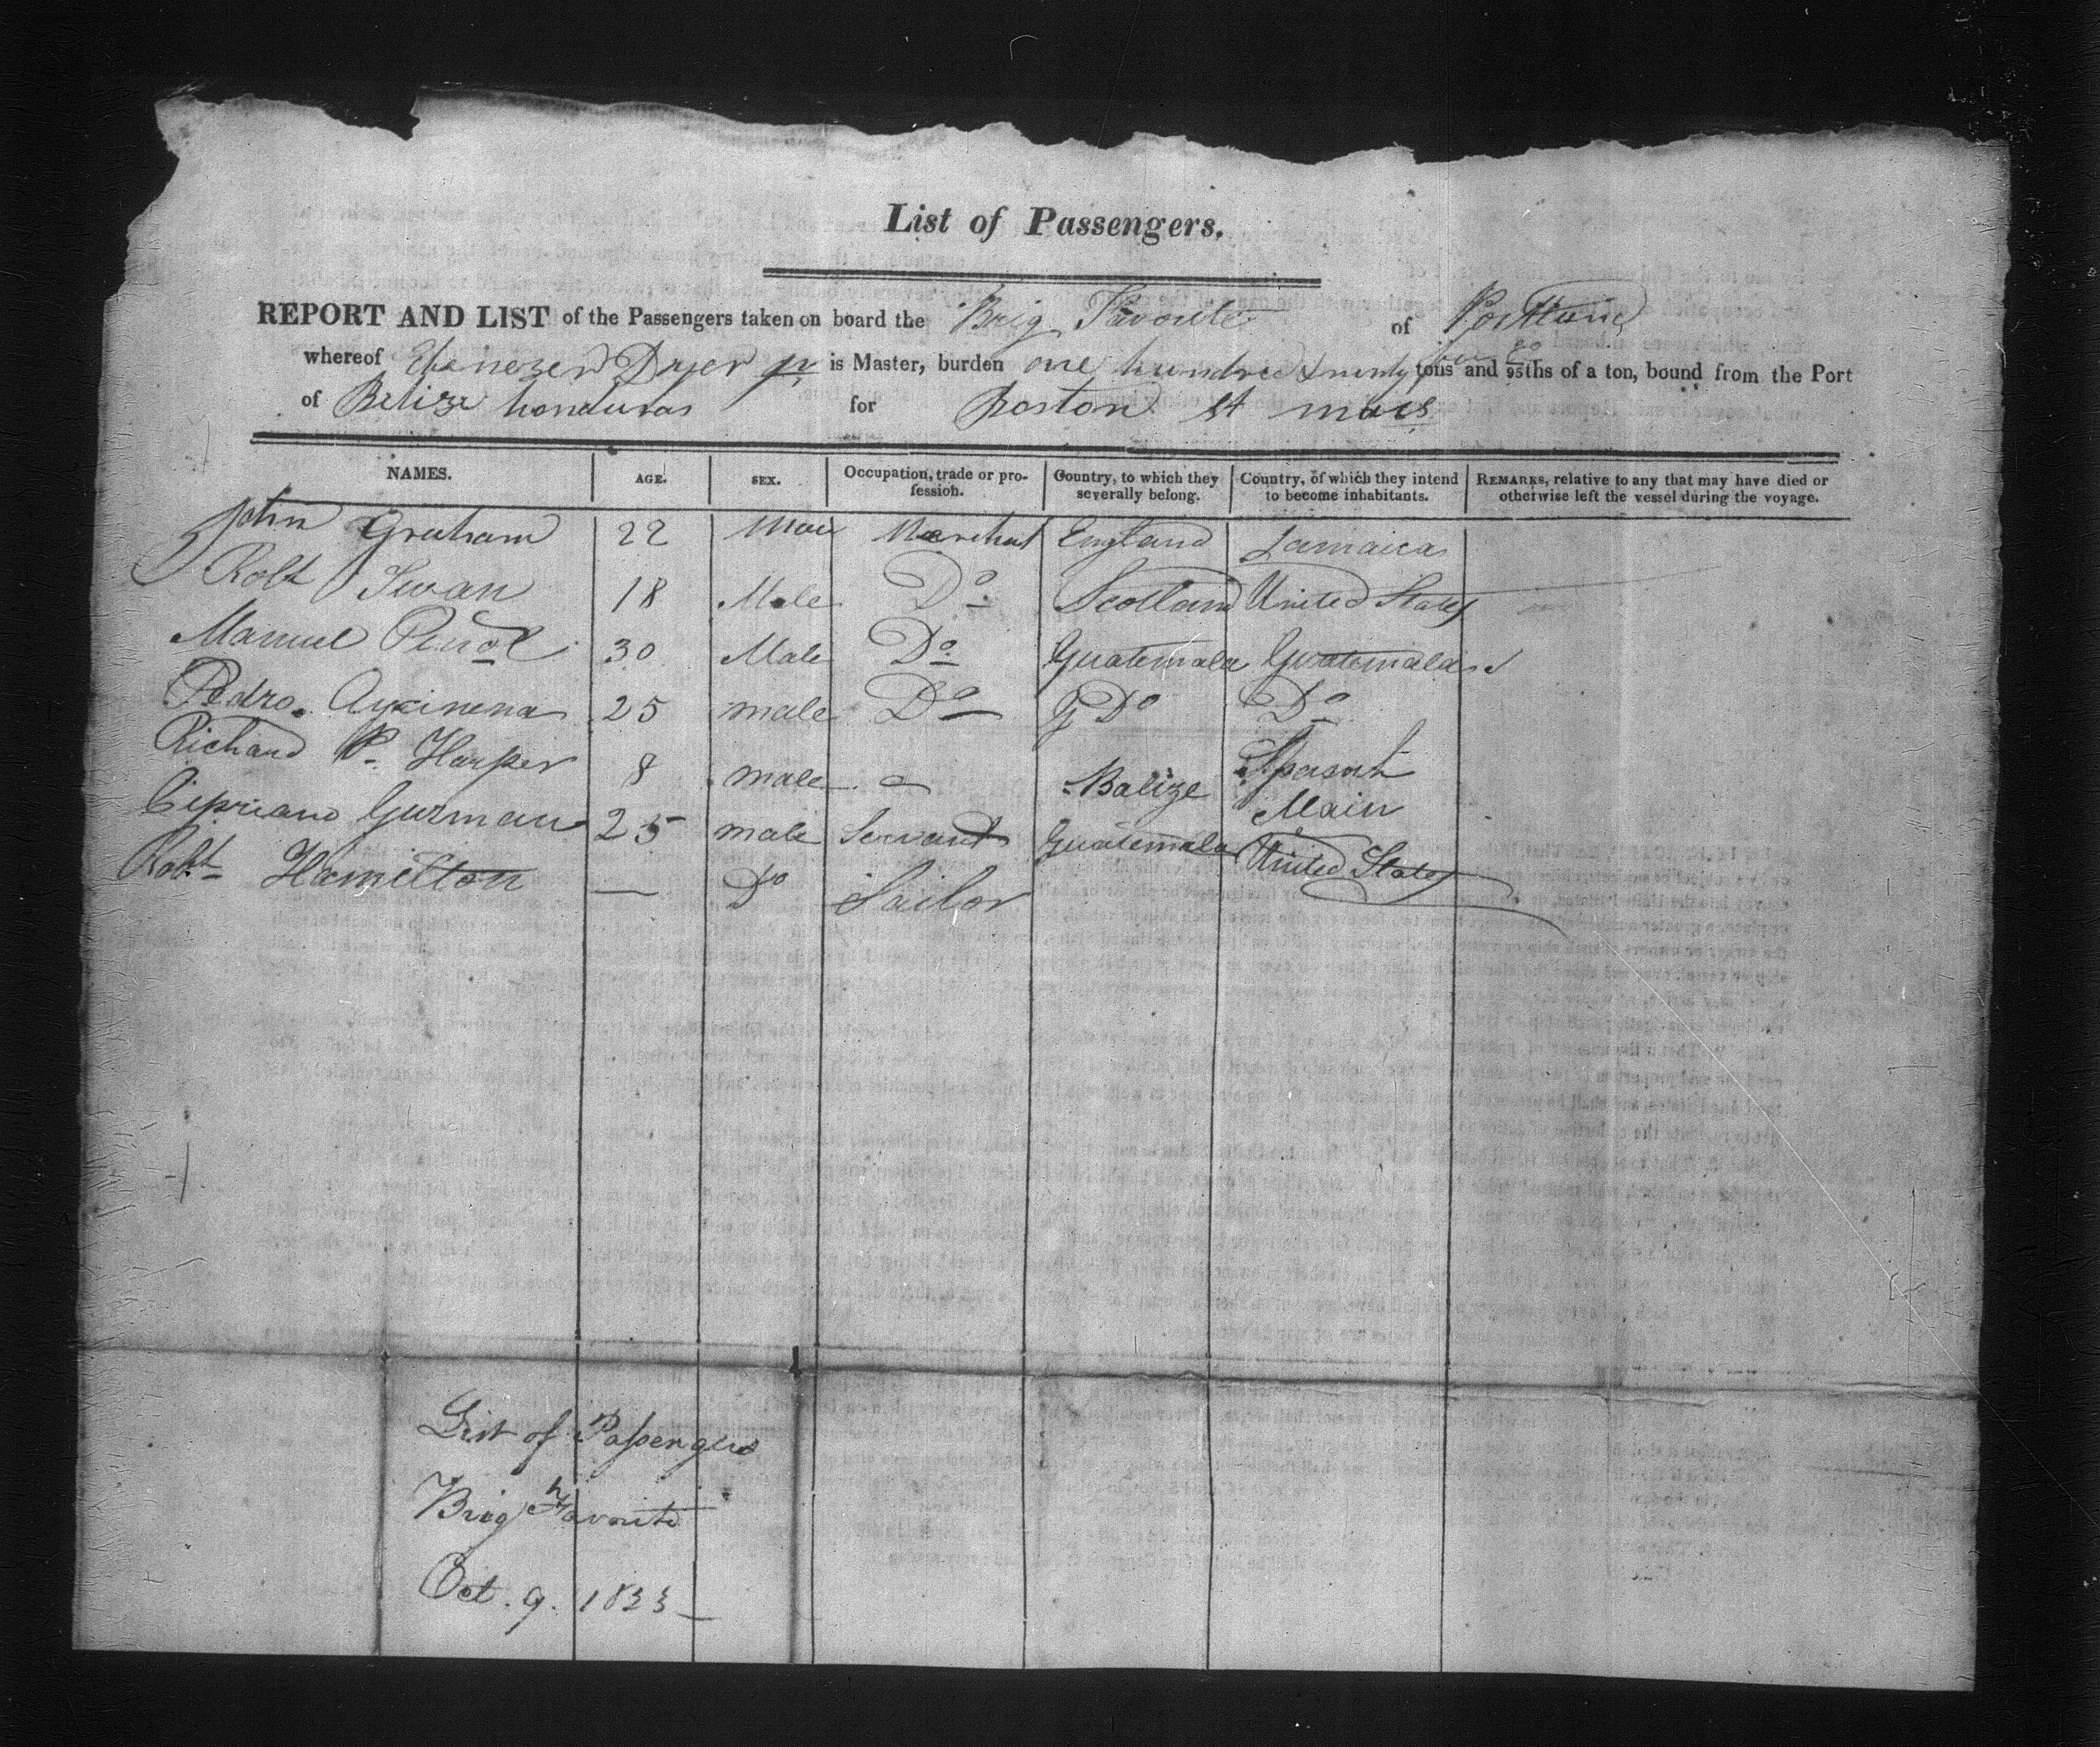 List of Passengers.
REPORT AND LIST of the Passengers taken on board the Brig Favourite of Portland
whereof Ebenezer Dyer jr is Master, burden one hundred & ninety tons and 95ths of a ton, bound from the Port
of Belize honduras for Boston st
NAMES. AGE. SEX. Occupation, trade or profession. Country, to which they severally belong. Country, of which they intend to become inhabitants. REMARKS, relative to any that may have died or otherwise left the vessel during the voyage.
John Graham 22 Male England Jamaica
Robt Swan 18 Male Do Scotland United States
Manuel 30 Male Do Guatemala Guatemala
Pedro Aycinena 25 male Do Do Do
Richard P. Harper 8 male — Balize Main
Cipriano Guzman 25 male Servant Guatemala United States
Robt Hamilton — Do Sailor
List of Passengers
Brig Favourite
Oct. 9. 1833